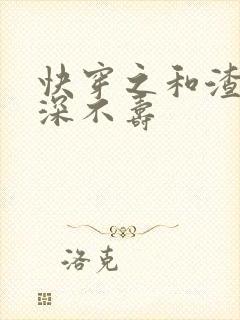 快穿之和渣
深不壽
洛克